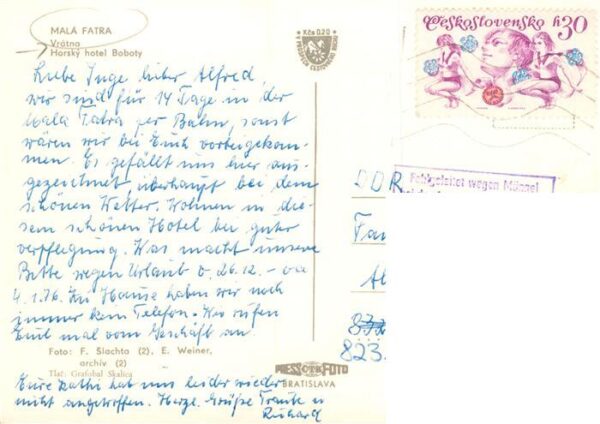 MALÁ FATRA
Vrátna
Horský hotel Boboty
Kčs 0,20
Československo h30
Liebe Inge, lieber Alfred,
wir sind für 14 Tage in der
Mala Fatra per Bahn, sonst
wären wir bei Euch vorbeigekom-
men. Es gefällt uns hier aus-
gezeichnet, überhaupt bei dem
schönen Wetter. Wohnen in die-
sem schönen Hotel bei guter
Verpflegung. Was macht unsere
Bitte wegen Urlaub v. 26.12. –
4.1.76. Zu Hause haben wir noch
immer kein Telefon. Wir rufen
Euch mal vom Geschäft an.
DDR
Fehlgeleitet wegen Mängel
Fa
A
823.
Foto: F. Slachta (2), E. Weiner,
archív (2)
Tlač: Grafobal Skalica
PRESSFOTO
BRATISLAVA
Eure Kathi hat uns leider wieder
nicht angetroffen. Herzl. Grüße Traute u
Richard